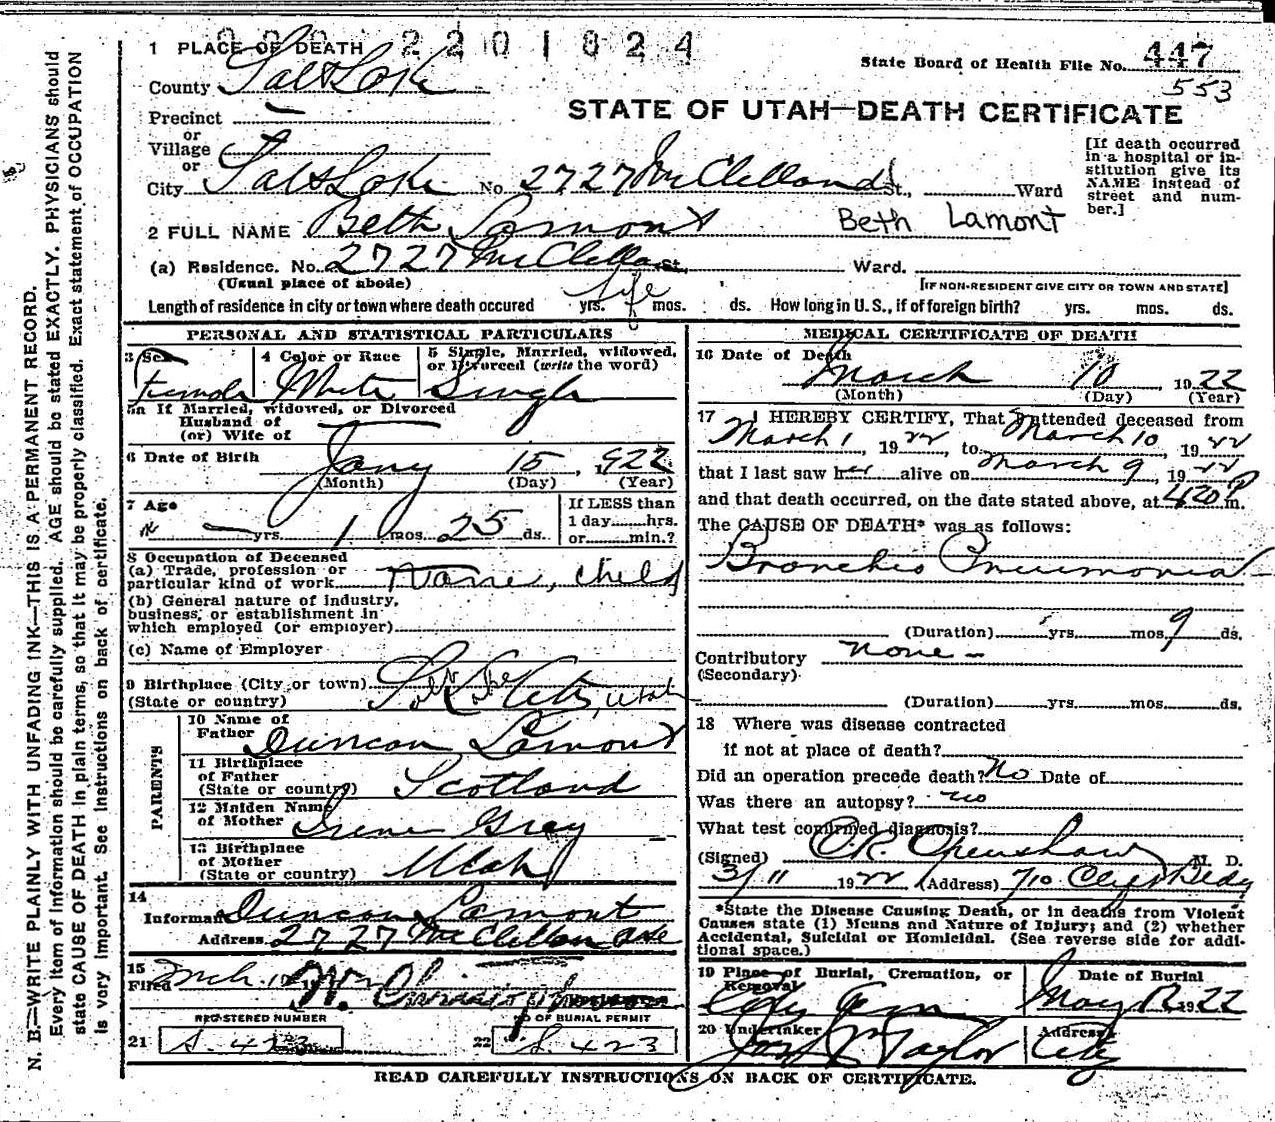 N. B.—WRITE PLAINLY WITH UNFADING INK—THIS IS A PERMANENT RECORD.
Every item of information should be carefully supplied. AGE should be stated EXACTLY. PHYSICIANS should
state CAUSE OF DEATH in plain terms, so that it may be properly classified. Exact statement of OCCUPATION
is very important. See instructions on back of certificate.
2201824
1 PLACE OF DEATH
State Board of Health File No. 447
553
County Salt Lake
STATE OF UTAH—DEATH CERTIFICATE
Precinct —
or
Village
or
City Salt Lake No. 2727 McClelland St., Ward
[If death occurred
in a hospital or in-
stitution give its
NAME instead of
street and num-
ber.]
2 FULL NAME Beth Lamont Beth Lamont
(a) Residence. No. 2727 McClelland St, Ward.
(Usual place of abode) [IF NON-RESIDENT GIVE CITY OR TOWN AND STATE]
Length of residence in city or town where death occured life yrs. mos. ds. How long in U. S., if of foreign birth? yrs. mos. ds.
PERSONAL AND STATISTICAL PARTICULARS
3 Sex 4 Color or Race 5 Single, Married, widowed,
or Divorced (write the word)
Female White Single
5a If Married, widowed, or Divorced
Husband of
(or) Wife of
6 Date of Birth Jany 15, 1922
(Month) (Day) (Year)
7 Age
— yrs. 1 mos. 25 ds.
If LESS than
1 day hrs.
or min.?
8 Occupation of Deceased
(a) Trade, profession or
particular kind of work None, Child
(b) General nature of industry,
business, or establishment in
which employed (or employer)
(c) Name of Employer
9 Birthplace (City or town) Salt Lake City, Utah
(State or country)
PARENTS
10 Name of
Father Duncan Lamont
11 Birthplace
of Father
(State or country) Scotland
12 Maiden Name
of Mother Irene Gray
13 Birthplace
of Mother
(State or country) Utah
14
Informant Duncan Lamont
Address 2727 McClelland Ave
15
Filed Mch. 19 W. Christoph
REGISTERED NUMBER NO OF BURIAL PERMIT
21 S. 423 22 S. 423
MEDICAL CERTIFICATE OF DEATH
16 Date of Death
March 10, 1922
(Month) (Day) (Year)
17 I HEREBY CERTIFY, That I attended deceased from
March 1, 1922 to March 10, 1922
that I last saw her alive on March 9, 1922
and that death occurred, on the date stated above, at 420 P m.
The CAUSE OF DEATH* was as follows:
Broncho Pneumonia
(Duration) yrs. mos. 9 ds.
Contributory none
(Secondary)
(Duration) yrs. mos. ds.
18 Where was disease contracted
if not at place of death?
Did an operation precede death? No Date of
Was there an autopsy? no
What test confirmed diagnosis?
(Signed) C.R. Openshaw M. D.
3/11 1922 (Address) 710 Clift Bldg
*State the Disease Causing Death, or in deaths from Violent
Causes state (1) Means and Nature of Injury; and (2) whether
Accidental, Suicidal or Homicidal. (See reverse side for addi-
tional space.)
19 Place of Burial, Cremation, or
Removal
City Cem
Date of Burial
1922
20 Undertaker
Jos. Taylor
Address
City
READ CAREFULLY INSTRUCTIONS ON BACK OF CERTIFICATE.